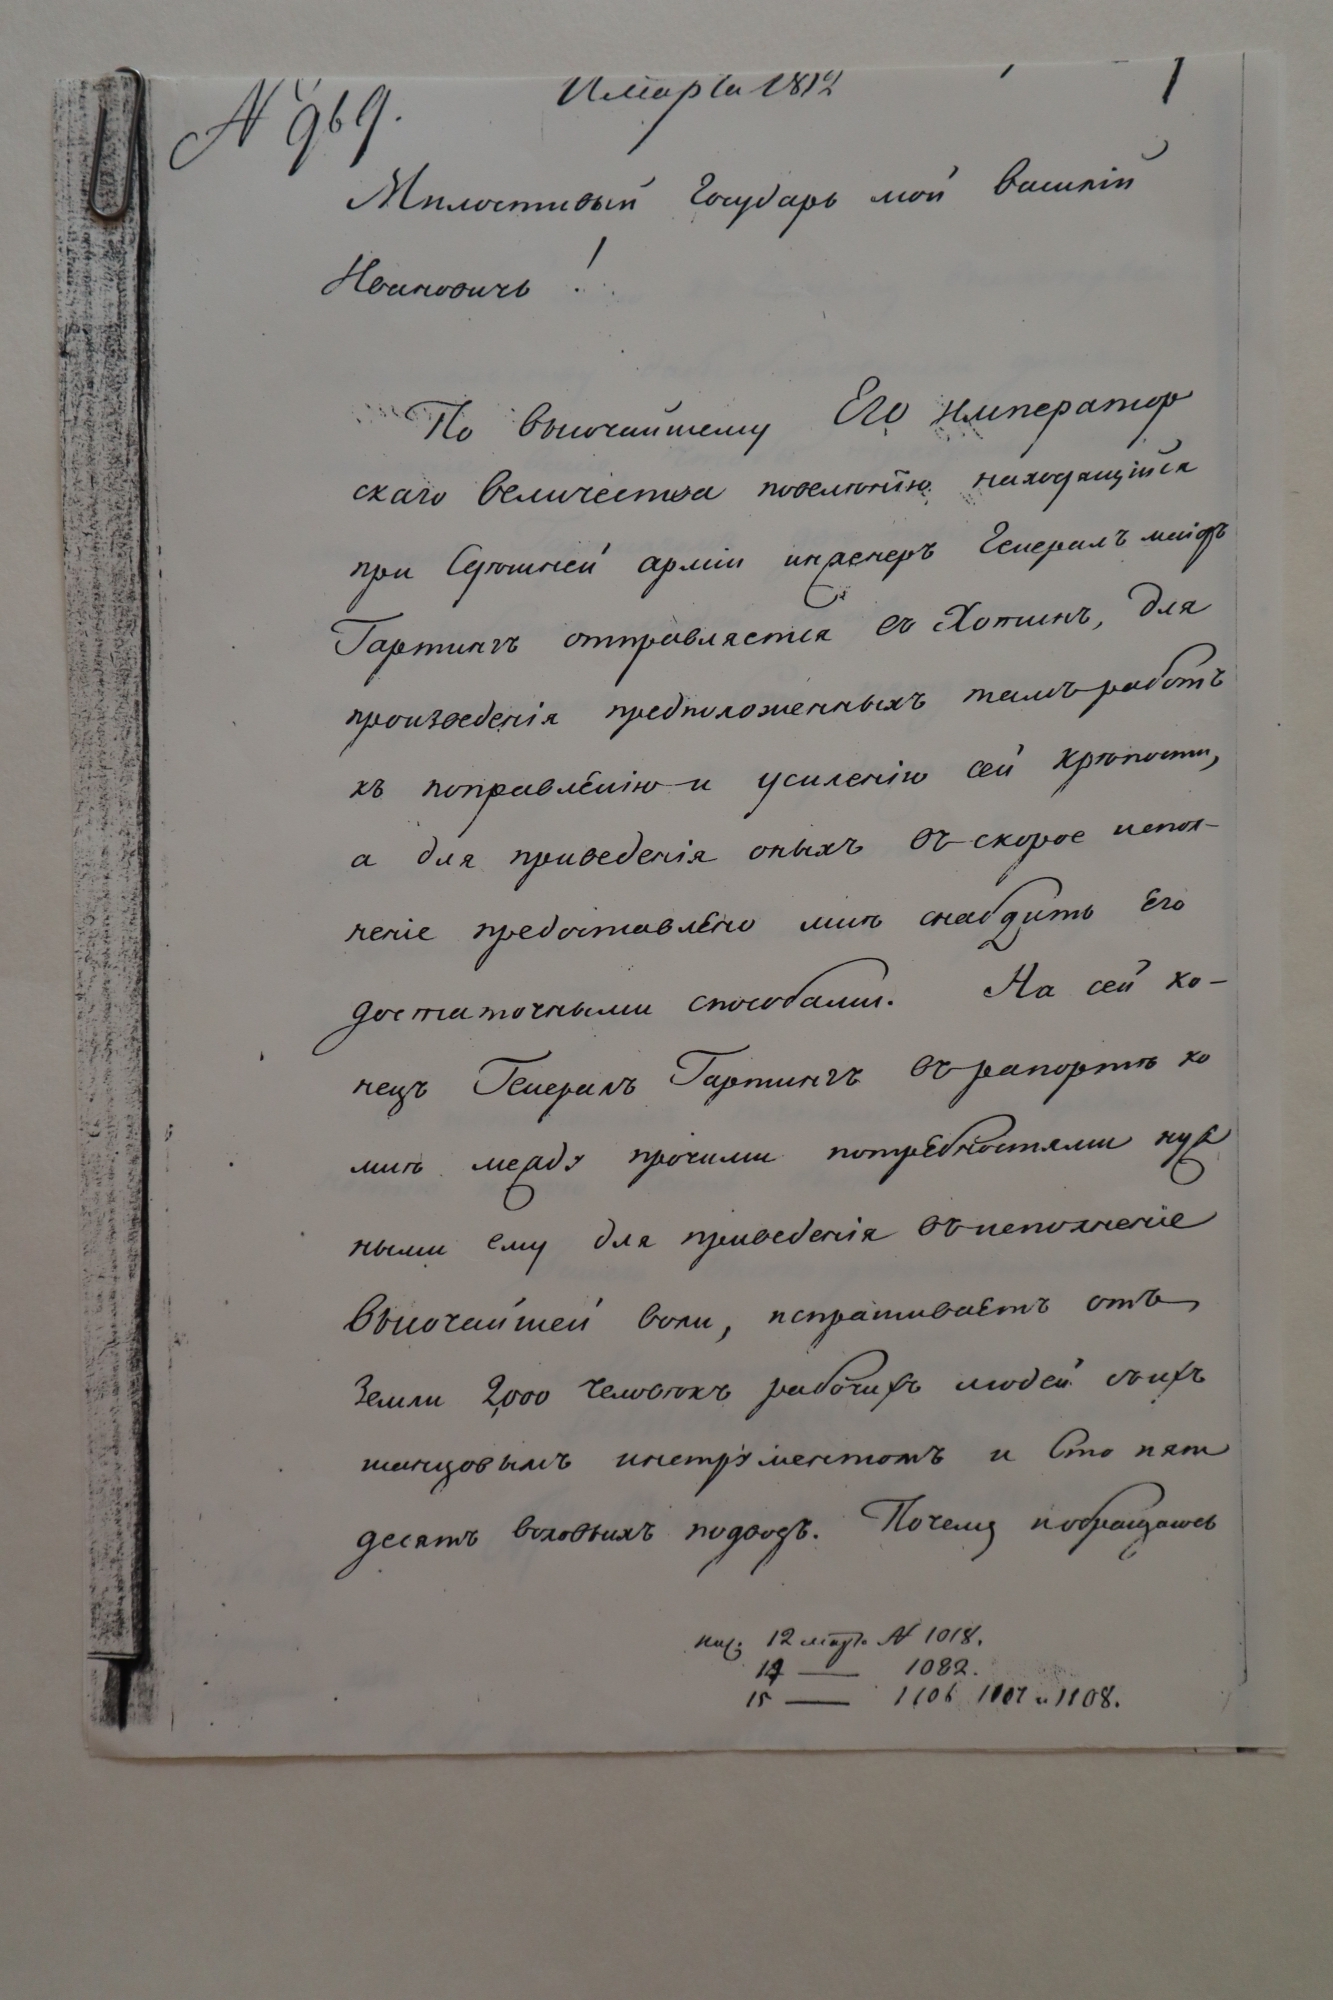 № 969.
11 марта 1812
1
Милостивый Государь мой Василій
Ивановичь!
По высочайшему Его император
скаго величества повелѣнію находящійся
при Здѣшней арміи инженеръ Генералъ маіоръ
Гартингъ отправляется въ Хотинъ, для
произведенія предположенныхъ тамъ работъ
къ поправлѣнію и усиленію сей крѣпости,
а для приведенія оныхъ въ скорое испол-
неніе предоставлѣно мнѣ снабдить Его
достаточными способами. На сей ко-
нецъ Генералъ Гартингъ въ рапортѣ ко
мнѣ между прочими потребностями нуж
ными ему для приведенія въ исполненіе
высочайшей воли, испрашиваетъ отъ
Земли 2000 человѣкъ рабочихъ людей съ ихъ
шанцовымъ инструментомъ и Сто пят
десятъ воловьихъ подводъ. Почему и обращаюсь
12 мар. № 1018.
14 — 1082.
15 — 1106 1107 и 1108.